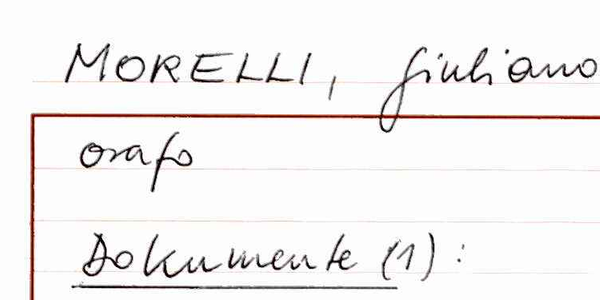 MORELLI, Giuliano
orafo
Dokumente (1):